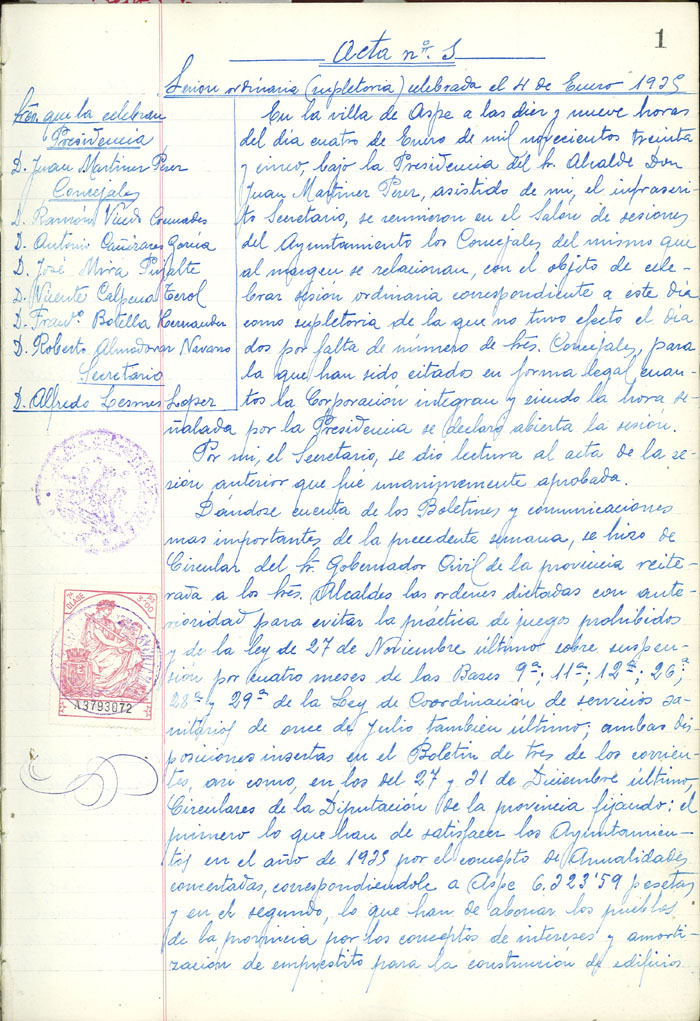 1
Acta nº 1
Sesion ordinaria (supletoria) celebrada el 4 de Enero 1935
Sres. que la celebran
Presidencia
D. Juan Martinez Perez
Concejales
D. Ramón Vicedo
D. Antonio Cañizares Garcia
D. José Mira Pujalte
D. Vicente Calpena Terol
D. Franco. Botella Hernandez
D. Roberto Almodovar Navarro
Secretario
D. Alfredo Lesmes Lopez
En la villa de Aspe a las diez y nueve horas
del dia cuatro de Enero de mil novecientos treinta
y cinco, bajo la Presidencia del Sr. Alcalde Don
Juan Martinez Perez, asistido de mi, el infrascri-
to Secretario, se reunieron en el Salón de sesiones
del Ayuntamiento los Concejales del mismo que
al margen se relacionan, con el objeto de cele-
brar sesión ordinaria correspondiente a este dia
como supletoria de la que no tuvo efecto el día
dos por falta de número de Sres. Concejales, para
la que han sido citados en forma legal cuan-
tos la Corporación integran y siendo la hora se-
ñalada por la Presidencia se declaró abierta la sesión.
Por mi, el Secretario, se dio lectura al acta de la se-
sión anterior que fué unanimemente aprobada.
Dándose cuenta de los Boletines y comunicaciones
mas importantes de la precedente semana, se hizo de
Circular del Sr. Gobernador Civil de la provincia reite-
rada a los Sres. Alcaldes las ordenes dictadas con ante-
rioridad para evitar la práctica de juegos prohibidos
y de la ley de 27 de Noviembre último sobre suspen-
sión por cuatro meses de las Bases 9ª; 11ª; 12ª; 26ª;
28ª y 29ª de la Ley de Coordinación de servicios sa-
nitarios de once de Julio tambien último; ambas dis-
posiciones insertas en el Boletin de tres de los corrien-
tes, asi como, en los del 27 y 31 de Diciembre último,
Circulares de la Diputación de la provincia fijando; el
primero lo que han de satisfacer los Ayuntamien-
tos en el año de 1935 por el concepto de Anualidades
concertadas, correspondiendole a Aspe 6.323'59 pesetas
y en el segundo, lo que han de abonar los pueblos
de la provincia por los conceptos de intereses y amorti-
zación de emprestito para la construcion de edificios
CLASE
3'00
A3793072